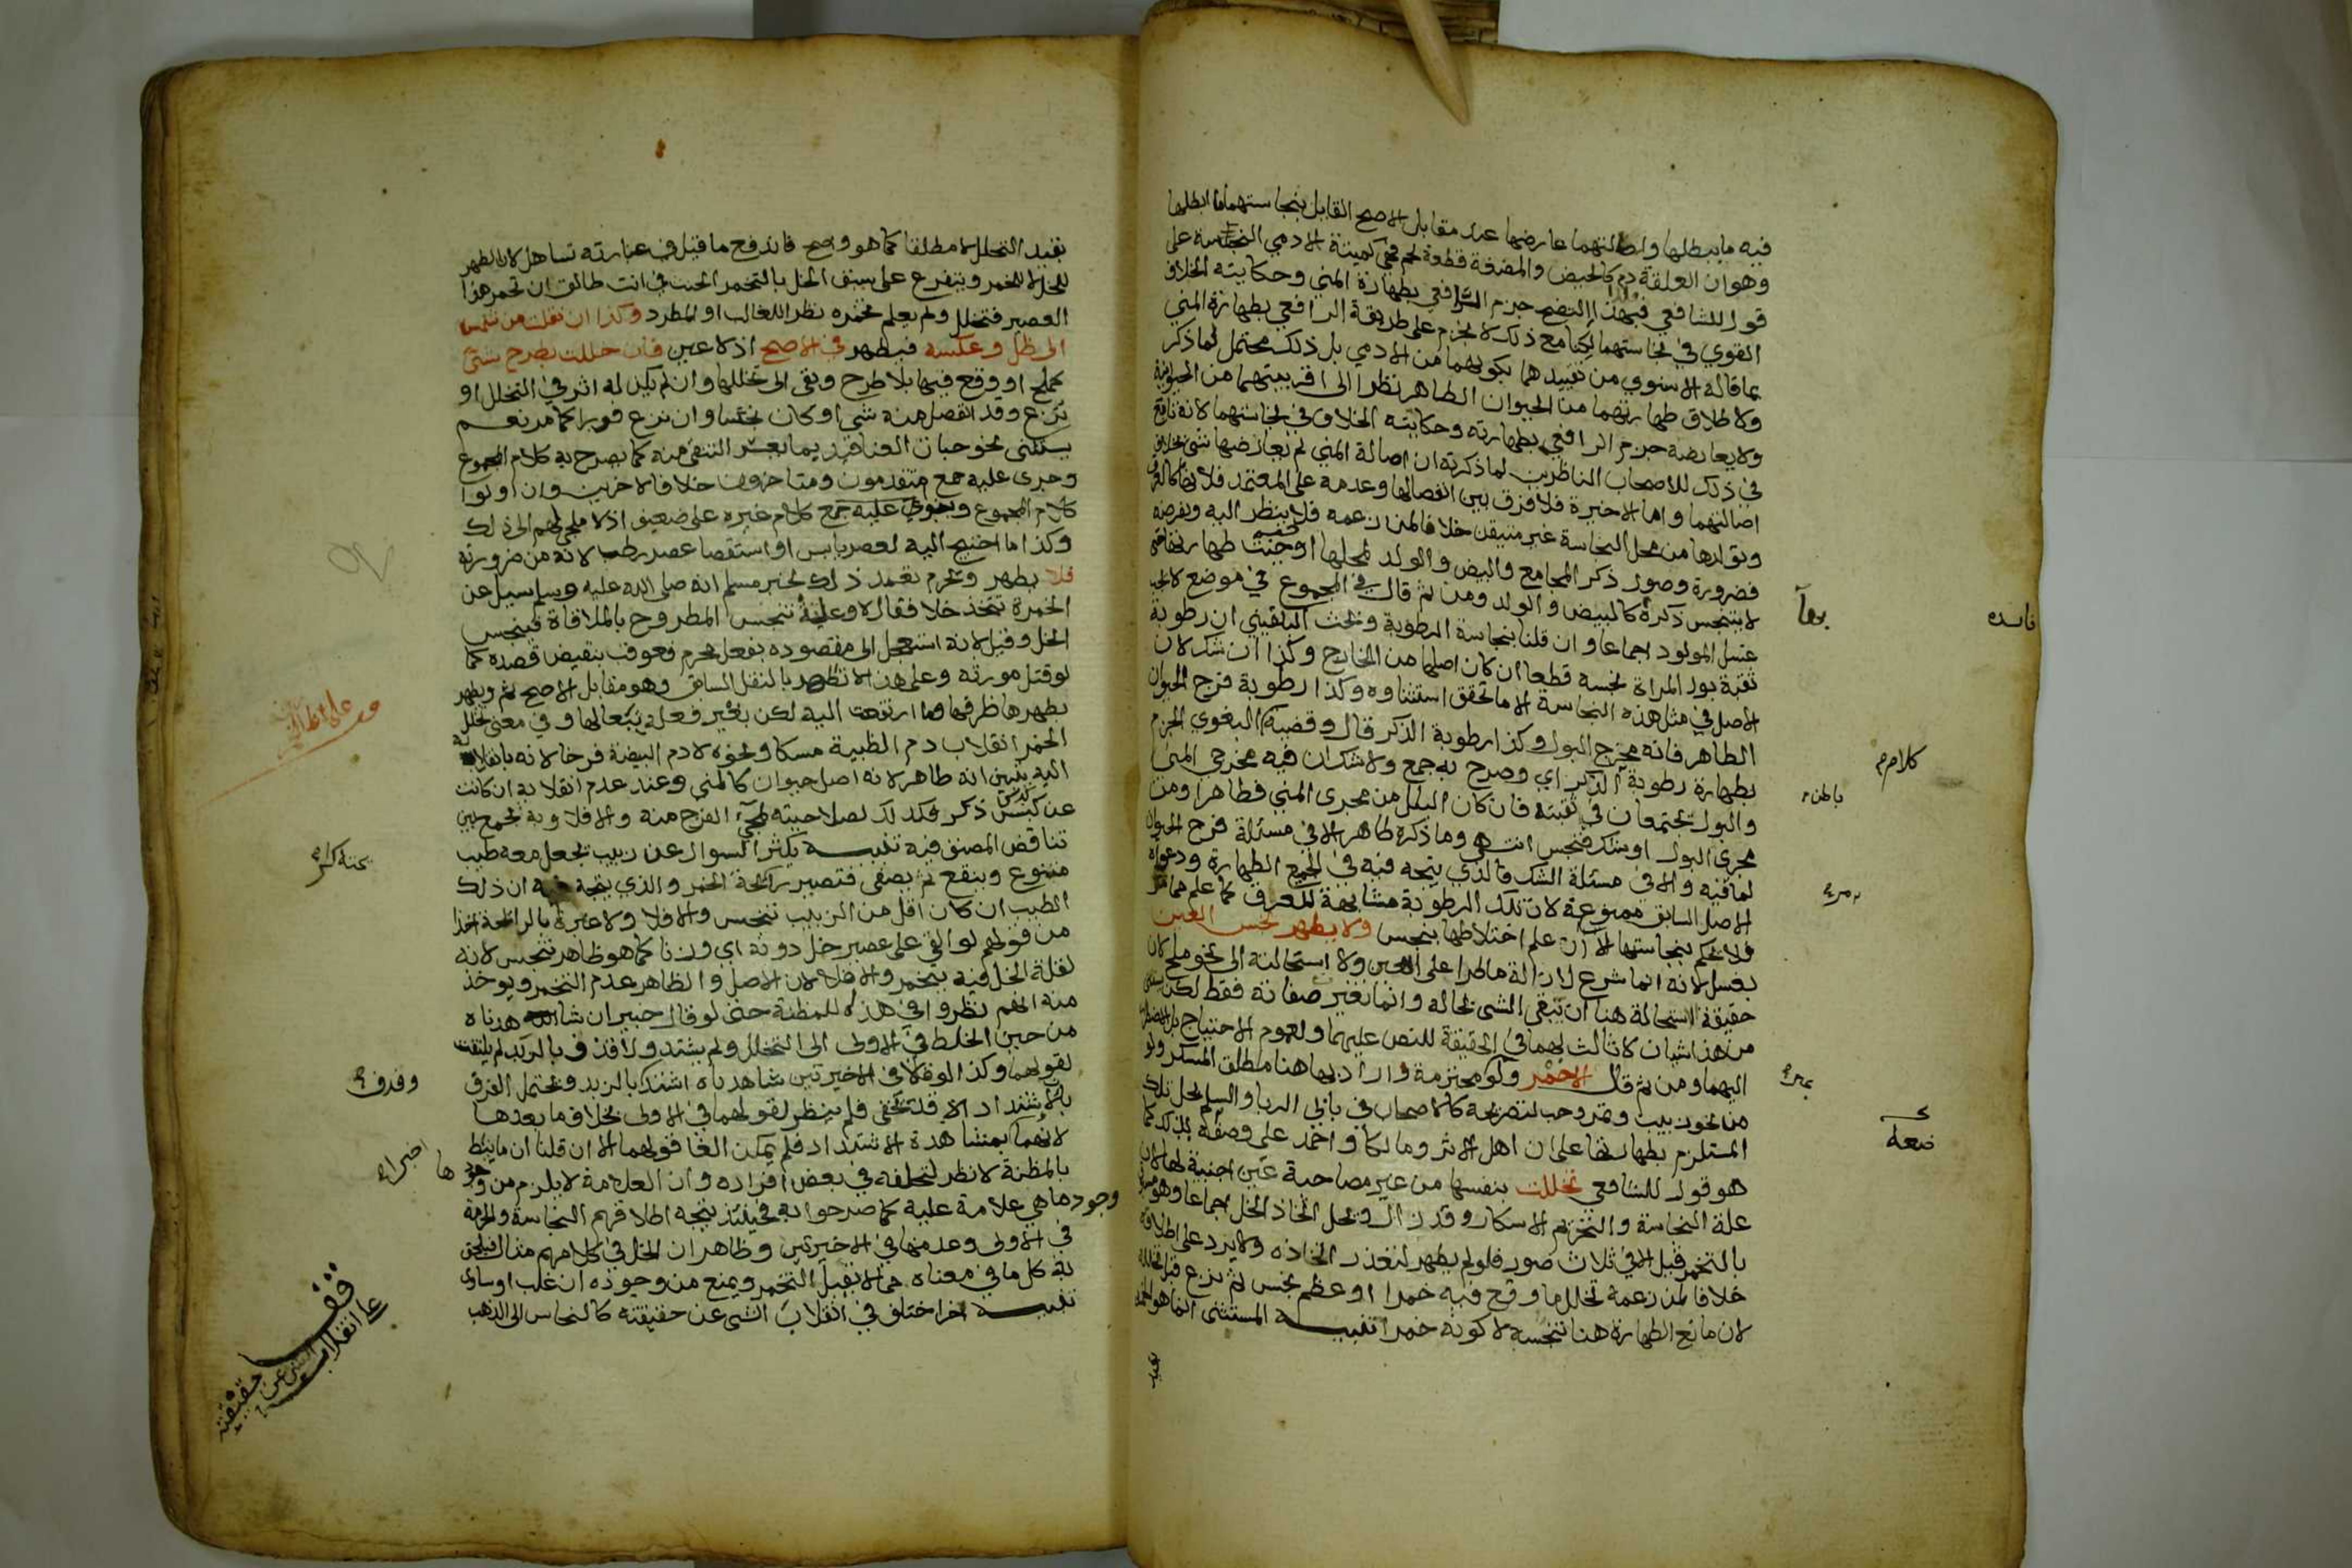 فيه ما يبطلها واصالتهما عارضها عند مقابل الاصح القايل بنجاستهما ما ابطلها
وهو ان العلقة دم كالحيض والمضغة قطعة لحم فهي كميتة الادمي النجسة على
قول للشافعي فبهذا اتضح جزم الرافعي بطهارة المني وحكايته الخلاف
القوي في نجاستهما لكنا مع ذلك لا نجزم على طريقة الرافعي بطهارة المني
بما قاله الاسنوي من تقييدهما بكونهما من الادمي بل ذلك محتمل لما ذكر
ولاطلاق طهارتهما من الحيوان الطاهر نظرا الى اقربيتهما من الحيوانية
ولا يعارضه جزم الرافعي بطهارته وحكايته الخلاف في نجاستهما لانه تابع
في ذلك للاصحاب الناظرين لما ذكرته ان اصالة المني لم يعارضها شي بخلاف
اصالتهما واما الاخيرة فلا فرق بين انفصالها وعدمه على المعتمد فلا
وتولدها من محل النجاسة غير متيقن خلافا لمن زعمه فلا ينظر اليه وبفرضه
فضرورة وصول ذكر المجامع والبيض والولد لمحلها اوجبت طهارتها
لا يتنجس ذكره كالبيض والولد ومن ثم قال في المجموع في موضع لا يجب
غسل المولود اجماعا وان قلنا بنجاسة الرطوبة وبحث البلقيني ان رطوبة
ثقبة بول المراة نجسة قطعا ان كان اصلها من الخارج وكذا ان شك لان
الاصل في مثل هذه النجاسة الا ما تحقق استثناوه وكذا رطوبة فرج الحيوان
الطاهر فانه مخرج البول وكذا رطوبة الذكر قال وقضية البغوي الجزم
بطهارة رطوبة الذكر اي وصرح به جمع ولا شك ان فيه مخرجي المني
والبول يجتمعان في ثقبته فان كان البلل من مجرى المني فطاهر او من
مجرى البول او شك فنجس انتهى وما ذكره ظاهر الا في مسئلة فرج الحيوان
لما فيه والا في مسئلة الشك فالذي يتجه فيه في الجميع الطهارة ودعواه
الاصل السابق ممنوعة لان تلك الرطوبة مشابهة للعرق كما علم مما مر
فلا نحكم بنجاستها الا ان علم اختلاطها بنجس ولا يطهر نجس العين
بغسل لانه انما شرع لازالة ما طرا على العين ولا استحالته الى نحو ملح كان
حقيقة الاستحالة هنا ان يبقى الشي بحاله وانما تغير صفاته فقط لكن
من هذا شيان لا ثالث لهما في الحقيقة للنص عليهما ولعموم الاحتياج بل الاضطرار
اليهما ومن ثم قال الا خمر ولو محترمة واراد بها هنا مطلق المسكر ولو
من نحو زبيب وتمر وحب لتصريحه كالاصحاب في بابي الربا والسلم بحل تلك
المستلزم بطهارتها على ان اهل الاثر ومالكا واحمد على وصفه بذلك كما
هو قول للشافعي تخللت بنفسها من غير مصاحبة عين اجنبية لها لان
علة النجاسة والتحريم الاسكار وقد زال ولحل اتخاذ الخل اجماعا وهو مسبوق
بالتخمر قبل الا في ثلاث صور فلو لم يطهر لتعذر اتخاذه ولا يرد على اطلاقه
خلافا لمن زعمه تخلل ما وقع فيه خمرا او عظم نجس ثم نزع قبل تخلله
لان مانع الطهارة هنا تنجسه لا كونه خمرا تنبيه المستثنى انما هو الخمر
بقيد
فاسده
كلامهم
باطن
بقيد التخلل لا مطلقا كما هو واضح فاندفع ما قيل في عبارته تساهل لان الطهر
للخل لا للخمر ويتفرع على سبق الخل بالتخمر الحنث في انت طالق ان تخمر هذا
العصير فتخلل ولم يعلم تخمره نظرا للغالب او المطرد وكذا ان نقلت من شمس
الى ظل وعكسه فيطهر في الاصح اذ لا عين فان خللت بطرح شي
كملح او وقع فيها بلا طرح وبقي الى تخللها وان لم يكن له اثر في التخلل او
نزع وقد انفصل منه شي او كان نجسا وان نزع فورا كما مر نعم
يستثنى نحو حبات العناقيد مما يعسر التنقي منه كما يصرح به كلام المجموع
وجرى عليه جمع متقدمون ومتاخرون خلافا لاخرين وان اولوا
كلام المجموع وبنوي عليه جمع كلام غيره على ضعيف اذ لا ملجئ لهم الى ذلك
وكذا ما احتيج اليه لعصر يابس او استقصا عصر رطب لانه من ضرورته
فلا يطهر ويحرم تعمد ذلك لخبر مسلم انه صلى الله عليه وسلم سيل عن
الخمرة تتخذ خلا فقال لا وعلته تنجس المطروح بالملاقاة فينجس
الخل وقيل لانه استعجل الى مقصوده بفعل محرم فعوقب بنقيض قصده كما
لو قتل مورثه وعلى هذا لا تطهر بالنقل السابق وهو مقابل الاصح ثم ويطهر
بطهرها ظرفها وما ارتفعت اليه لكن بغير فعله تبعا لها وفي معنى تخلل
الخمر انقلاب دم الظبية مسكا ونحوه لا دم البيضة فرخا لانه بانقلابه
اليه يتبين انه طاهر لانه اصل حيوان كالمني وعند عدم انقلابه ان كانت
عن كبس ذكر فكذلك لصلاحيته لمجي الفرخ منه والا فلا وبه يجمع بين
تناقض المصنف فيه تنبيه يكثر السوال عن زبيب يجعل معه طيب
متنوع وينقع ثم يصفى فتصير رائحة الخمر والذي يتجه فيه ان ذلك
الطيب ان كان اقل من الزبيب تنجس والا فلا ولا عبرة بالرائحة اخذا
من قولهم لو القى على عصير خل دونه اي وزنا كما هو ظاهر تنجس لانه
لقلة الخل فيه يتخمر والا فلا لان الاصل والظاهر عدم التخمر ويوخذ
منه انهم نظروا في هذا للمظنة حتى لو قال خبيران شاهدناه
من حين الخلط في الاولى الى التخلل ولم يشتد ولا قذف بالزبد لم يلتفت
لقولهما وكذا لو قالا في الاخيرتين شاهدناه اشتد كالزبد ويحتمل الفرق
بان الاشتداد لا قد تخفى فلم ينظر لقولهما في الاولى بخلاف ما بعدها
لانهما بمشاهدة الاشتداد فلم يمكن الغا قولهما الا ان قلنا ان ما ينط
بالمظنة لا نظر لتخلفه في بعض افراده وان العلامة لا يلزم من
وجودها ما هي علامة عليه كما صرحوا به فحينئذ يتجه اطلاقهم النجاسة والحرمة
في الاولى وعدمها في الاخيرتين وظاهر ان الخل في كلامهم مثال فيلحق
به كل ما في معناه مما لا يقبل التخمر ويمنع من وجوده ان غلب او ساوى
تنبيه اخر اختلف في انقلاب الشي عن حقيقته كالنحاس الى الذهب
وقذف
قف
على انقلاب
الشي عن
حقيقته